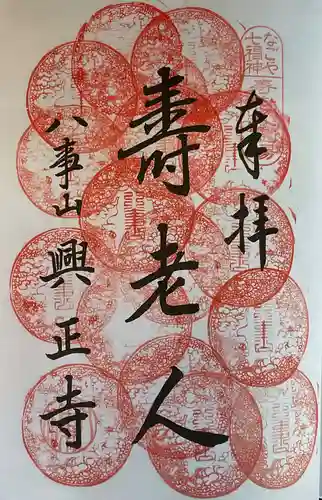 奉拝
壽老人
八事山興正寺
なごや
七福神